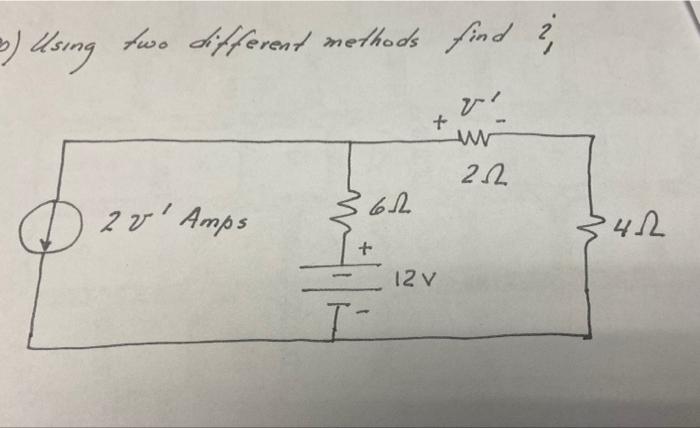 ) Using two different methods find i,
+ v' -
2Ω
2 v' Amps
6Ω
4Ω
+
12 v
-